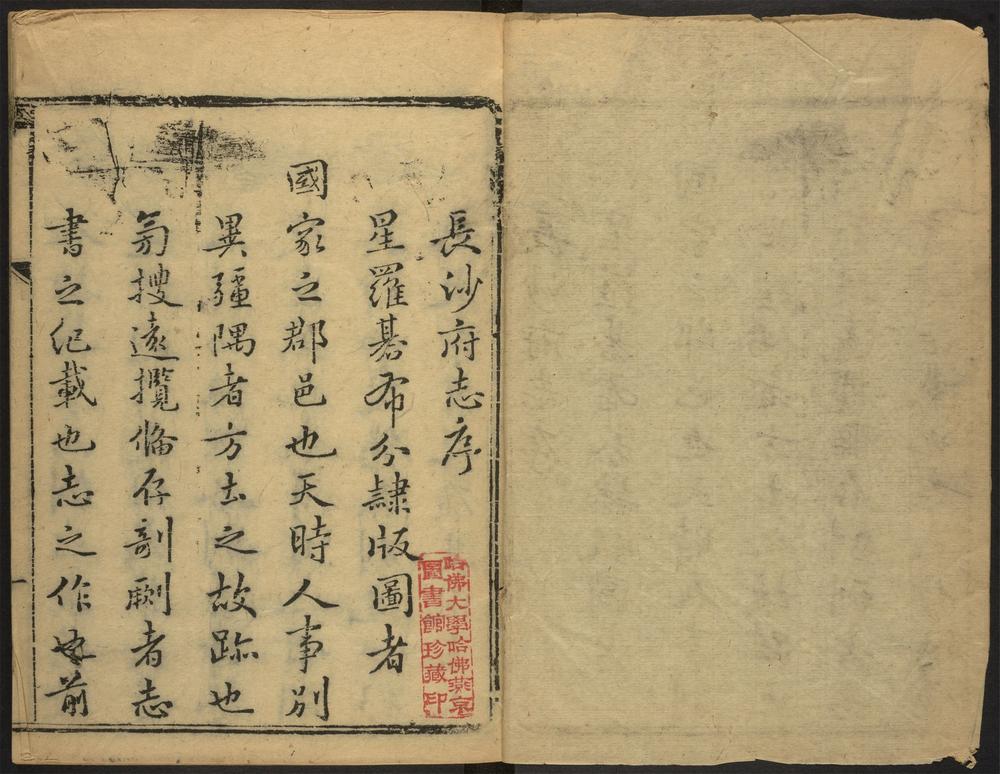 長沙府志序
星羅碁布分隸版圖者
國家之郡邑也天時人事別
異疆隅者方土之故跡也
旁搜遠攬偹存剞劂者志
書之纪載也志之作由前
哈佛大學哈佛燕京
圖書館珍藏印